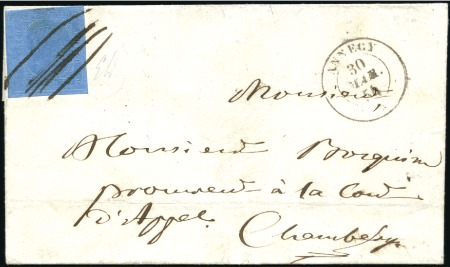 ANNECY
30
MAR.
54
Monsieur
Monsieur Borquin
procureur à la Cour
d'Appel
Chambéry